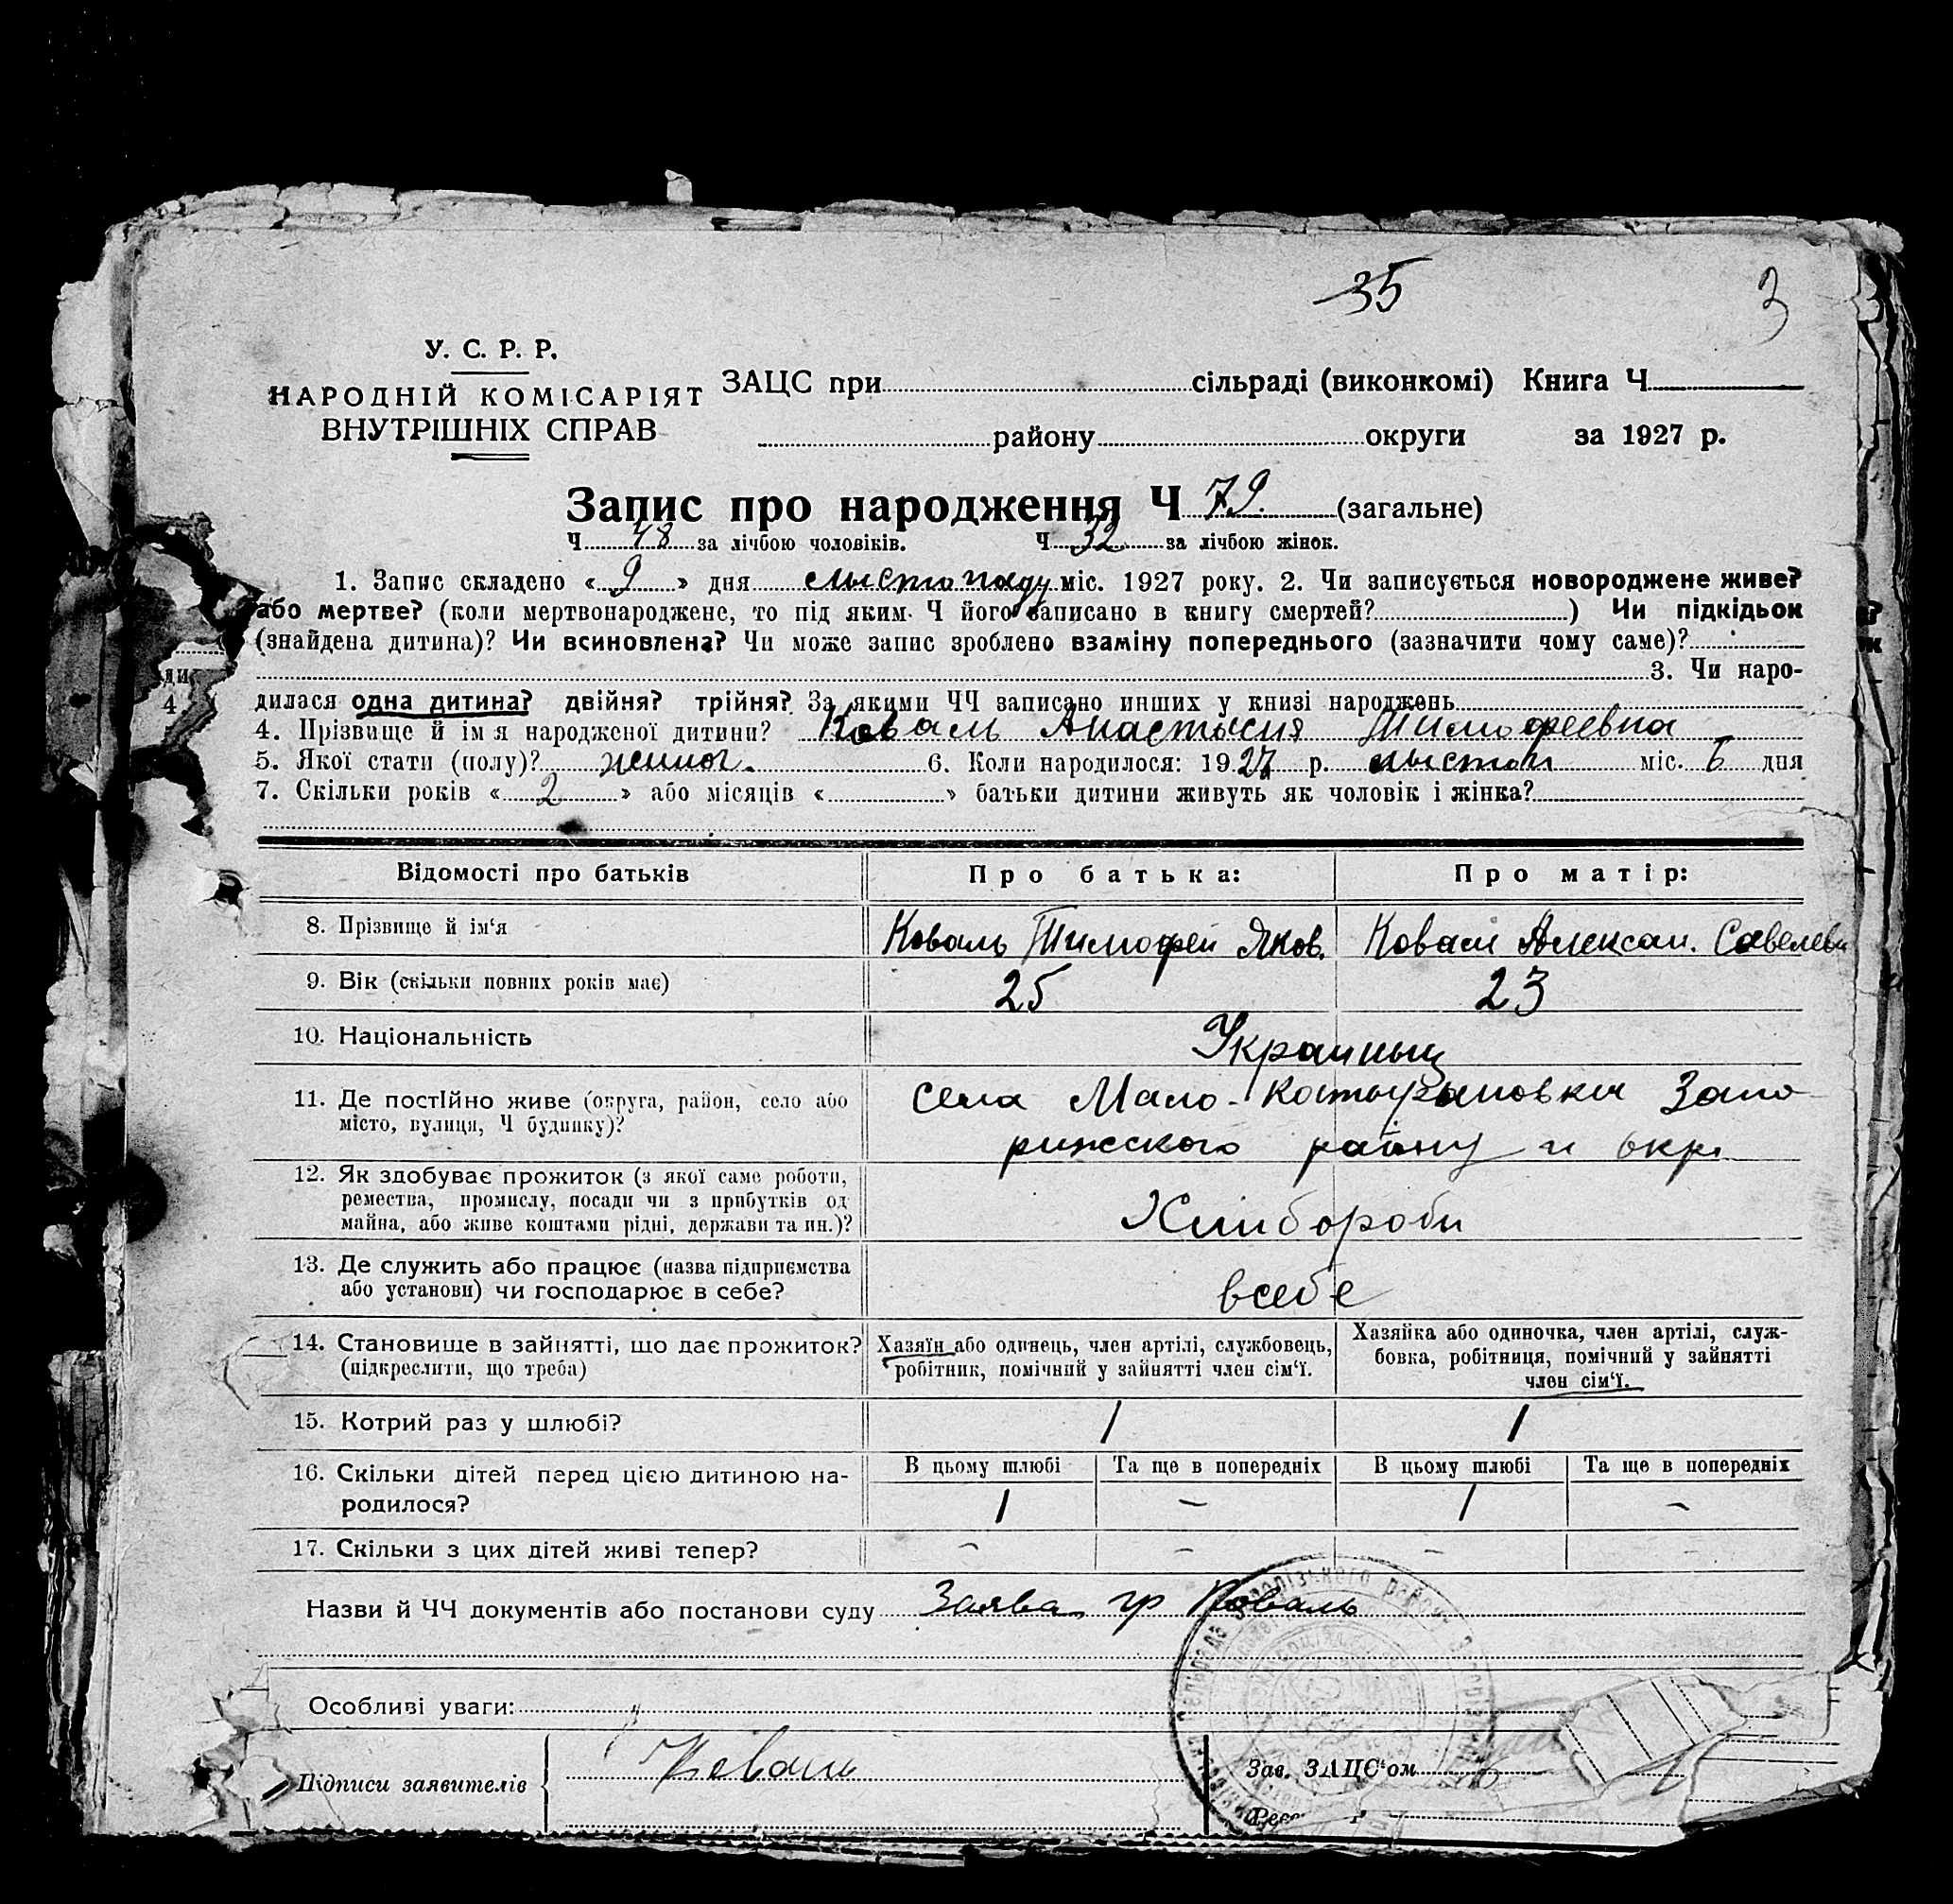 35 3
У. С. Р. Р.
НАРОДНІЙ КОМІСАРІЯТ
ВНУТРІШНІХ СПРАВ
ЗАЦС при сільраді (виконкомі) Книга Ч
району округи за 1927 р.
Запис про народження Ч 79. (загальне)
Ч 48 за лічбою чоловіків. Ч 32 за лічбою жінок.
1. Запис складено « 9 » дня лыстопаду міс. 1927 року. 2. Чи записується новороджене живе?
або мертве? (коли мертвонароджене, то під яким Ч його записано в книгу смертей? ) Чи підкідьок
(знайдена дитина)? Чи всиновлена? Чи може запис зроблено взаміну попереднього (зазначити чому саме)?
3. Чи наро-
дилася одна дитина? двійня? трійня? За якими ЧЧ записано инших у книзі народжень
4. Прізвище й ім я народженої дитини? Коваль Анастысия Тимофеевна
5. Якої стати (полу)? жиноч. 6. Коли народилося: 1927 р. лыстоп міс. 6 дня
7. Скільки років « 2 » або місяців « » батьки дитини живуть як чоловік і жінка?
Відомості про батьків Про батька: Про матір:
8. Прізвище й ім‘я Коваль Тимофей Яков. Коваль Алексан. Савелевн
9. Вік (скільки повних років має) 25 23
10. Національність Украиныц
11. Де постійно живе (округа, район, село або місто, вулиця, Ч будинку)? села Мало-Катырыновка Запо
рижского району и окр.
12. Як здобуває прожиток (з якої саме роботи,
ремества, промислу, посади чи з прибутків од
майна, або живе коштами рідні, держави та ин.)? Хлибороби
13. Де служить або працює (назва підприємства
або установи) чи господарює в себе? всебе
14. Становище в зайнятті, що дає прожиток? (підкреслити, що треба)
Хазяїн або одинець, член артілі, службовець,
робітник, помічний у зайнятті член сім‘ї.
Хазяйка або одиночка, член артілі, служ-
бовка, робітниця, помічний у зайнятті
член сім‘ї.
15. Котрий раз у шлюбі? 1 1
16. Скільки дітей перед цією дитиною на-
родилося?
В цьому шлюбі Та ще в попередніх В цьому шлюбі Та ще в попередніх
1 – 1 –
17. Скільки з цих дітей живі тепер? – – –
Назви й ЧЧ документів або постанови суду Заява гр Коваль
Особливі уваги:
Підписи заявителів Коваль
Зав. ЗАЦС‘ом